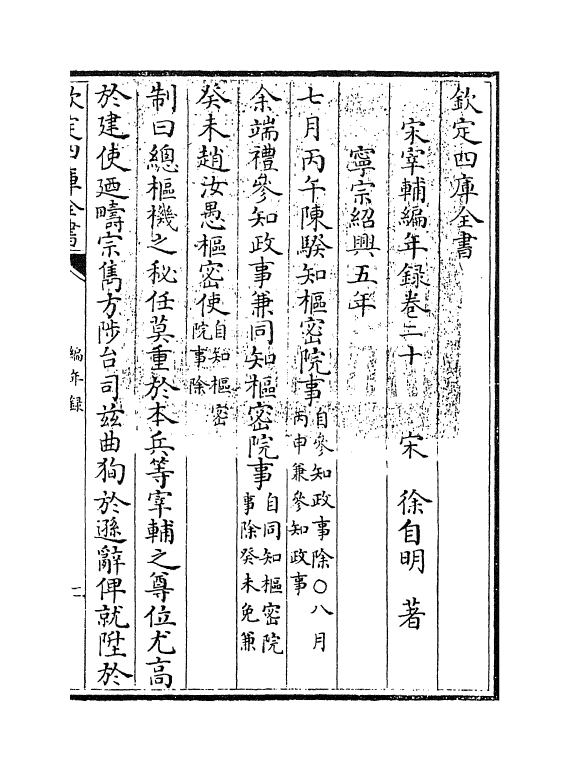 欽定四庫全書
宋宰輔編年録卷二十　宋　徐自明　著
寧宗紹興五年
七月丙午陳騤知樞密院事自參知政事除○八月丙申兼參知政事
余端禮參知政事兼同知樞密院事自同知樞密院事除癸未免兼
癸未趙汝愚樞密使自知樞密院事除
制曰總樞機之秘任莫重於本兵等宰輔之尊位尤高
於建使廼疇宗雋方陟台司兹曲狥於遜辭俾就陞於
欽定四庫全書
編年録